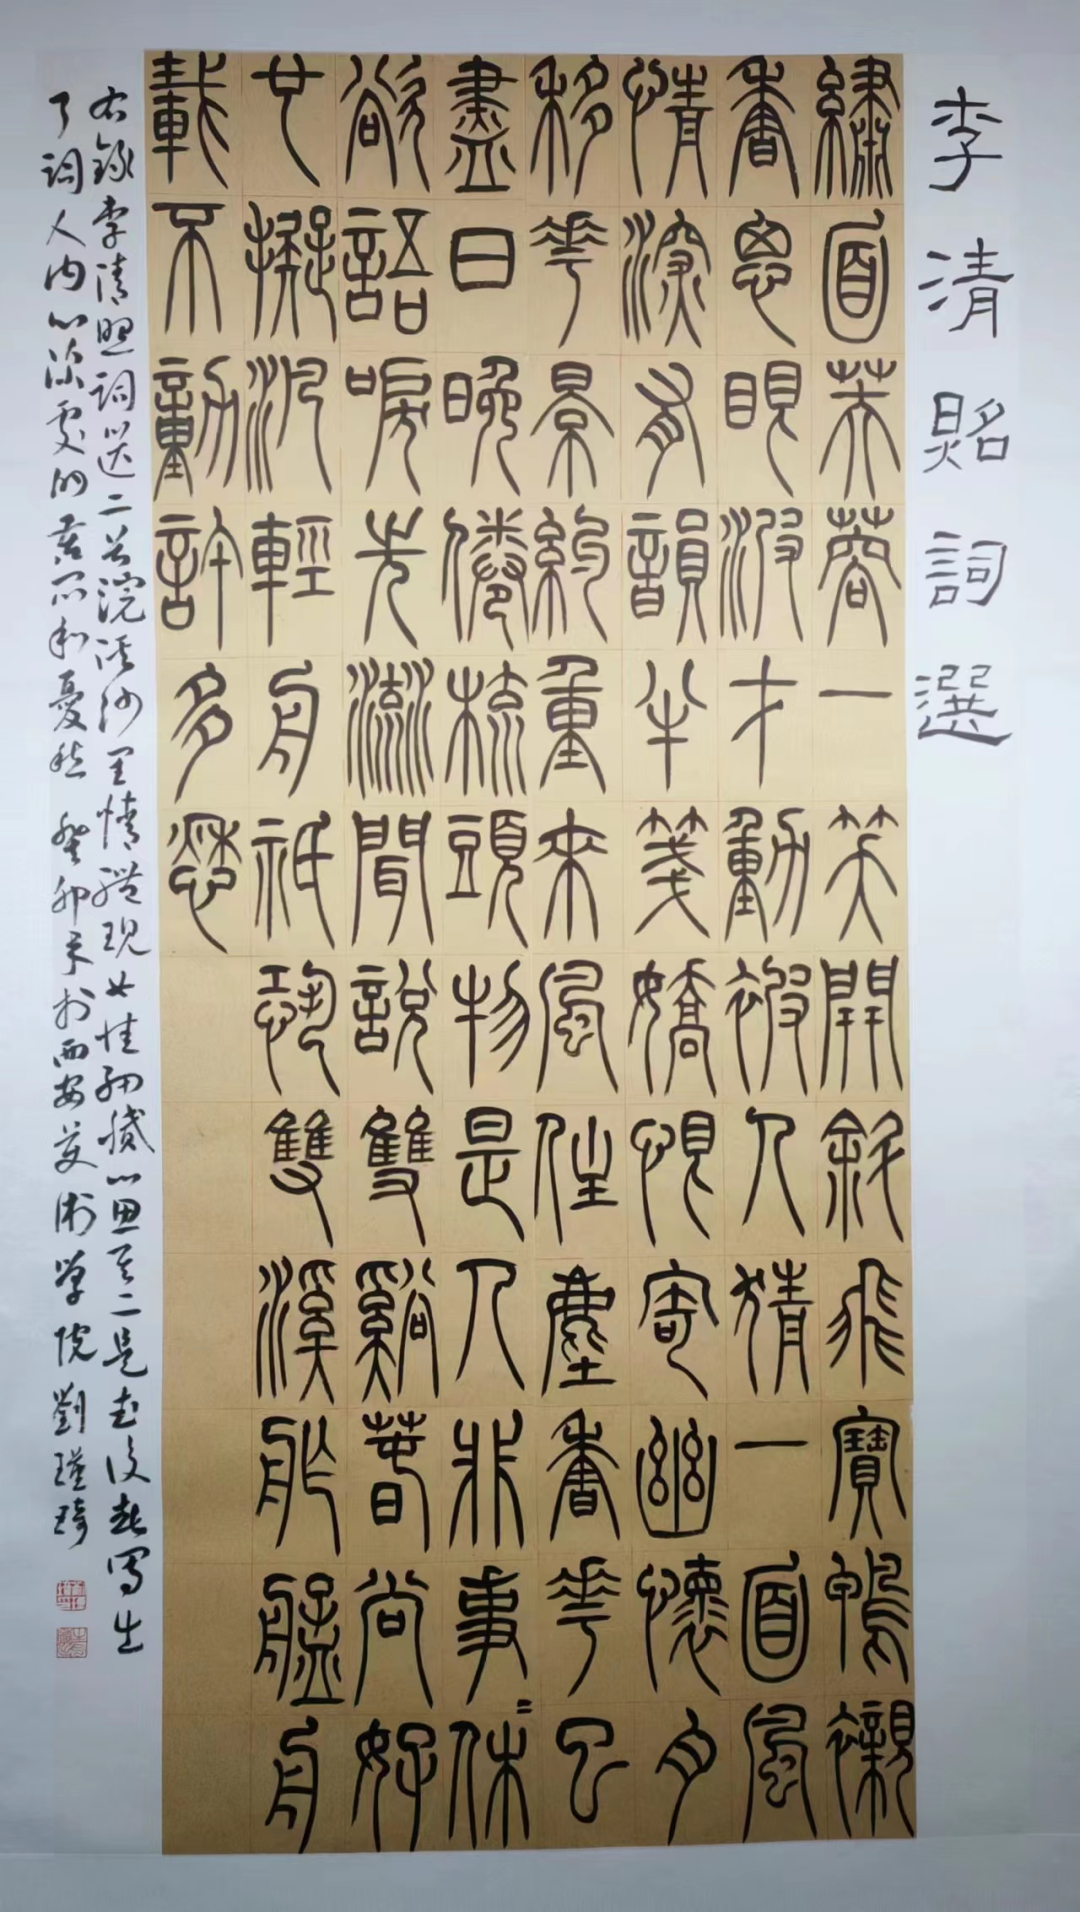 李清照詞選
繡面芙蓉一笑開斜飛寶鴨襯
香思眼波才動被人猜一面風
情深有韻半箋嬌恨寄幽懷月
移花景約重來風住塵香花已
盡日晚倦梳頭物是人非事〻休
欲語淚先流聞說雙谿春尚好
也擬汎輕舟祇恐雙溪舴艋舟
載不動許多愁
右錄李清照詞選二首浣溪沙閨情體現女性細膩心思其二是武陵春寫出
了詞人内心深處的苦悶和憂愁 癸卯年於西安美術學院劉瑾琦